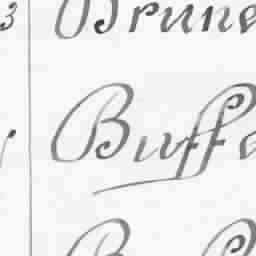 3 Brune
Buffe